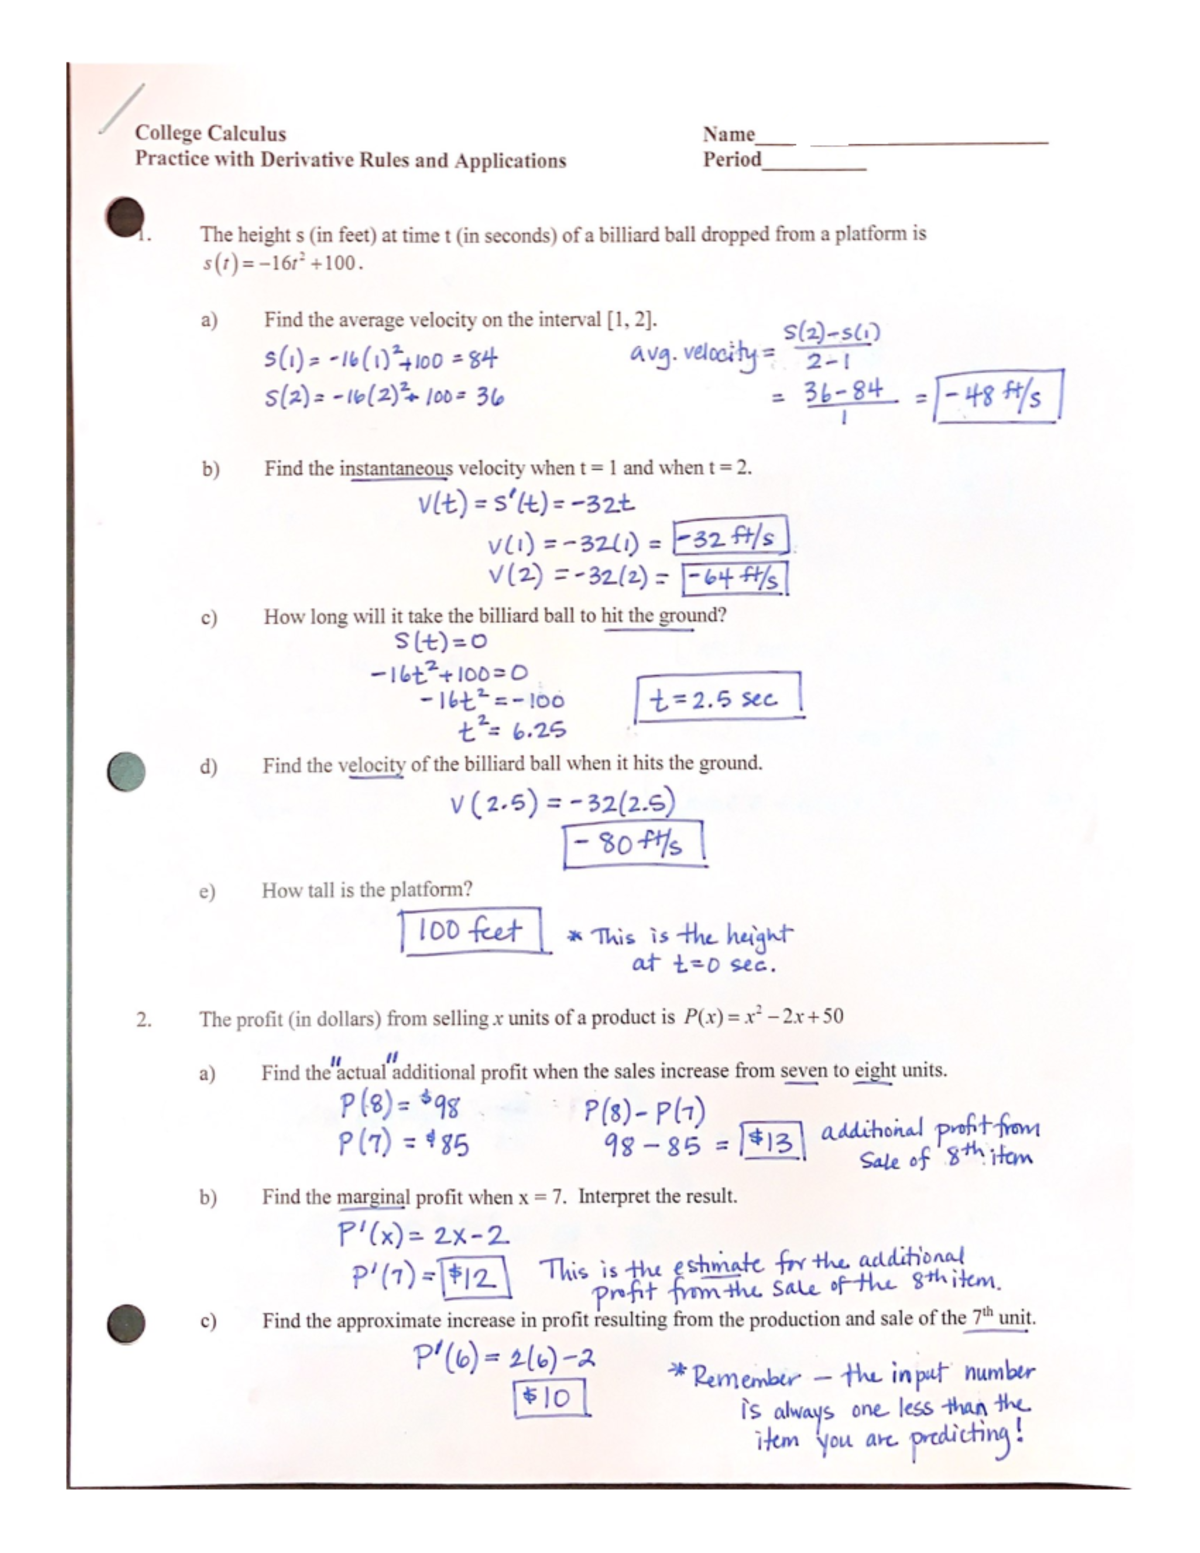 College Calculus
Name
Practice with Derivative Rules and Applications
Period
1. The height s (in feet) at time t (in seconds) of a billiard ball dropped from a platform is
s(t) = -16t² +100.
a) Find the average velocity on the interval [1, 2].
s(1) = -16(1)²+100 = 84
s(2) = -16(2)²+ 100 = 36
avg. velocity = s(2)-s(1) / 2-1
= 36-84 / 1 = -48 ft/s
b) Find the instantaneous velocity when t = 1 and when t = 2.
v(t) = s'(t) = -32t
v(1) = -32(1) = -32 ft/s
v(2) = -32(2) = -64 ft/s
c) How long will it take the billiard ball to hit the ground?
s(t)=0
-16t²+100=0
-16t² = -100
t² = 6.25
t = 2.5 sec
d) Find the velocity of the billiard ball when it hits the ground.
v(2.5) = -32(2.5)
- 80 ft/s
e) How tall is the platform?
100 feet
* This is the height
at t=0 sec.
2. The profit (in dollars) from selling x units of a product is P(x) = x² - 2x + 50
a) Find the "actual" additional profit when the sales increase from seven to eight units.
P(8) = $98
P(7) = $85
P(8) - P(7)
98 - 85 = $13
additional profit from
sale of 8th item
b) Find the marginal profit when x = 7. Interpret the result.
P'(x) = 2x-2
P'(7) = $12
This is the estimate for the additional
profit from the sale of the 8th item.
c) Find the approximate increase in profit resulting from the production and sale of the 7th unit.
P'(6) = 2(6)-2
$10
* Remember - the input number
is always one less than the
item you are predicting!